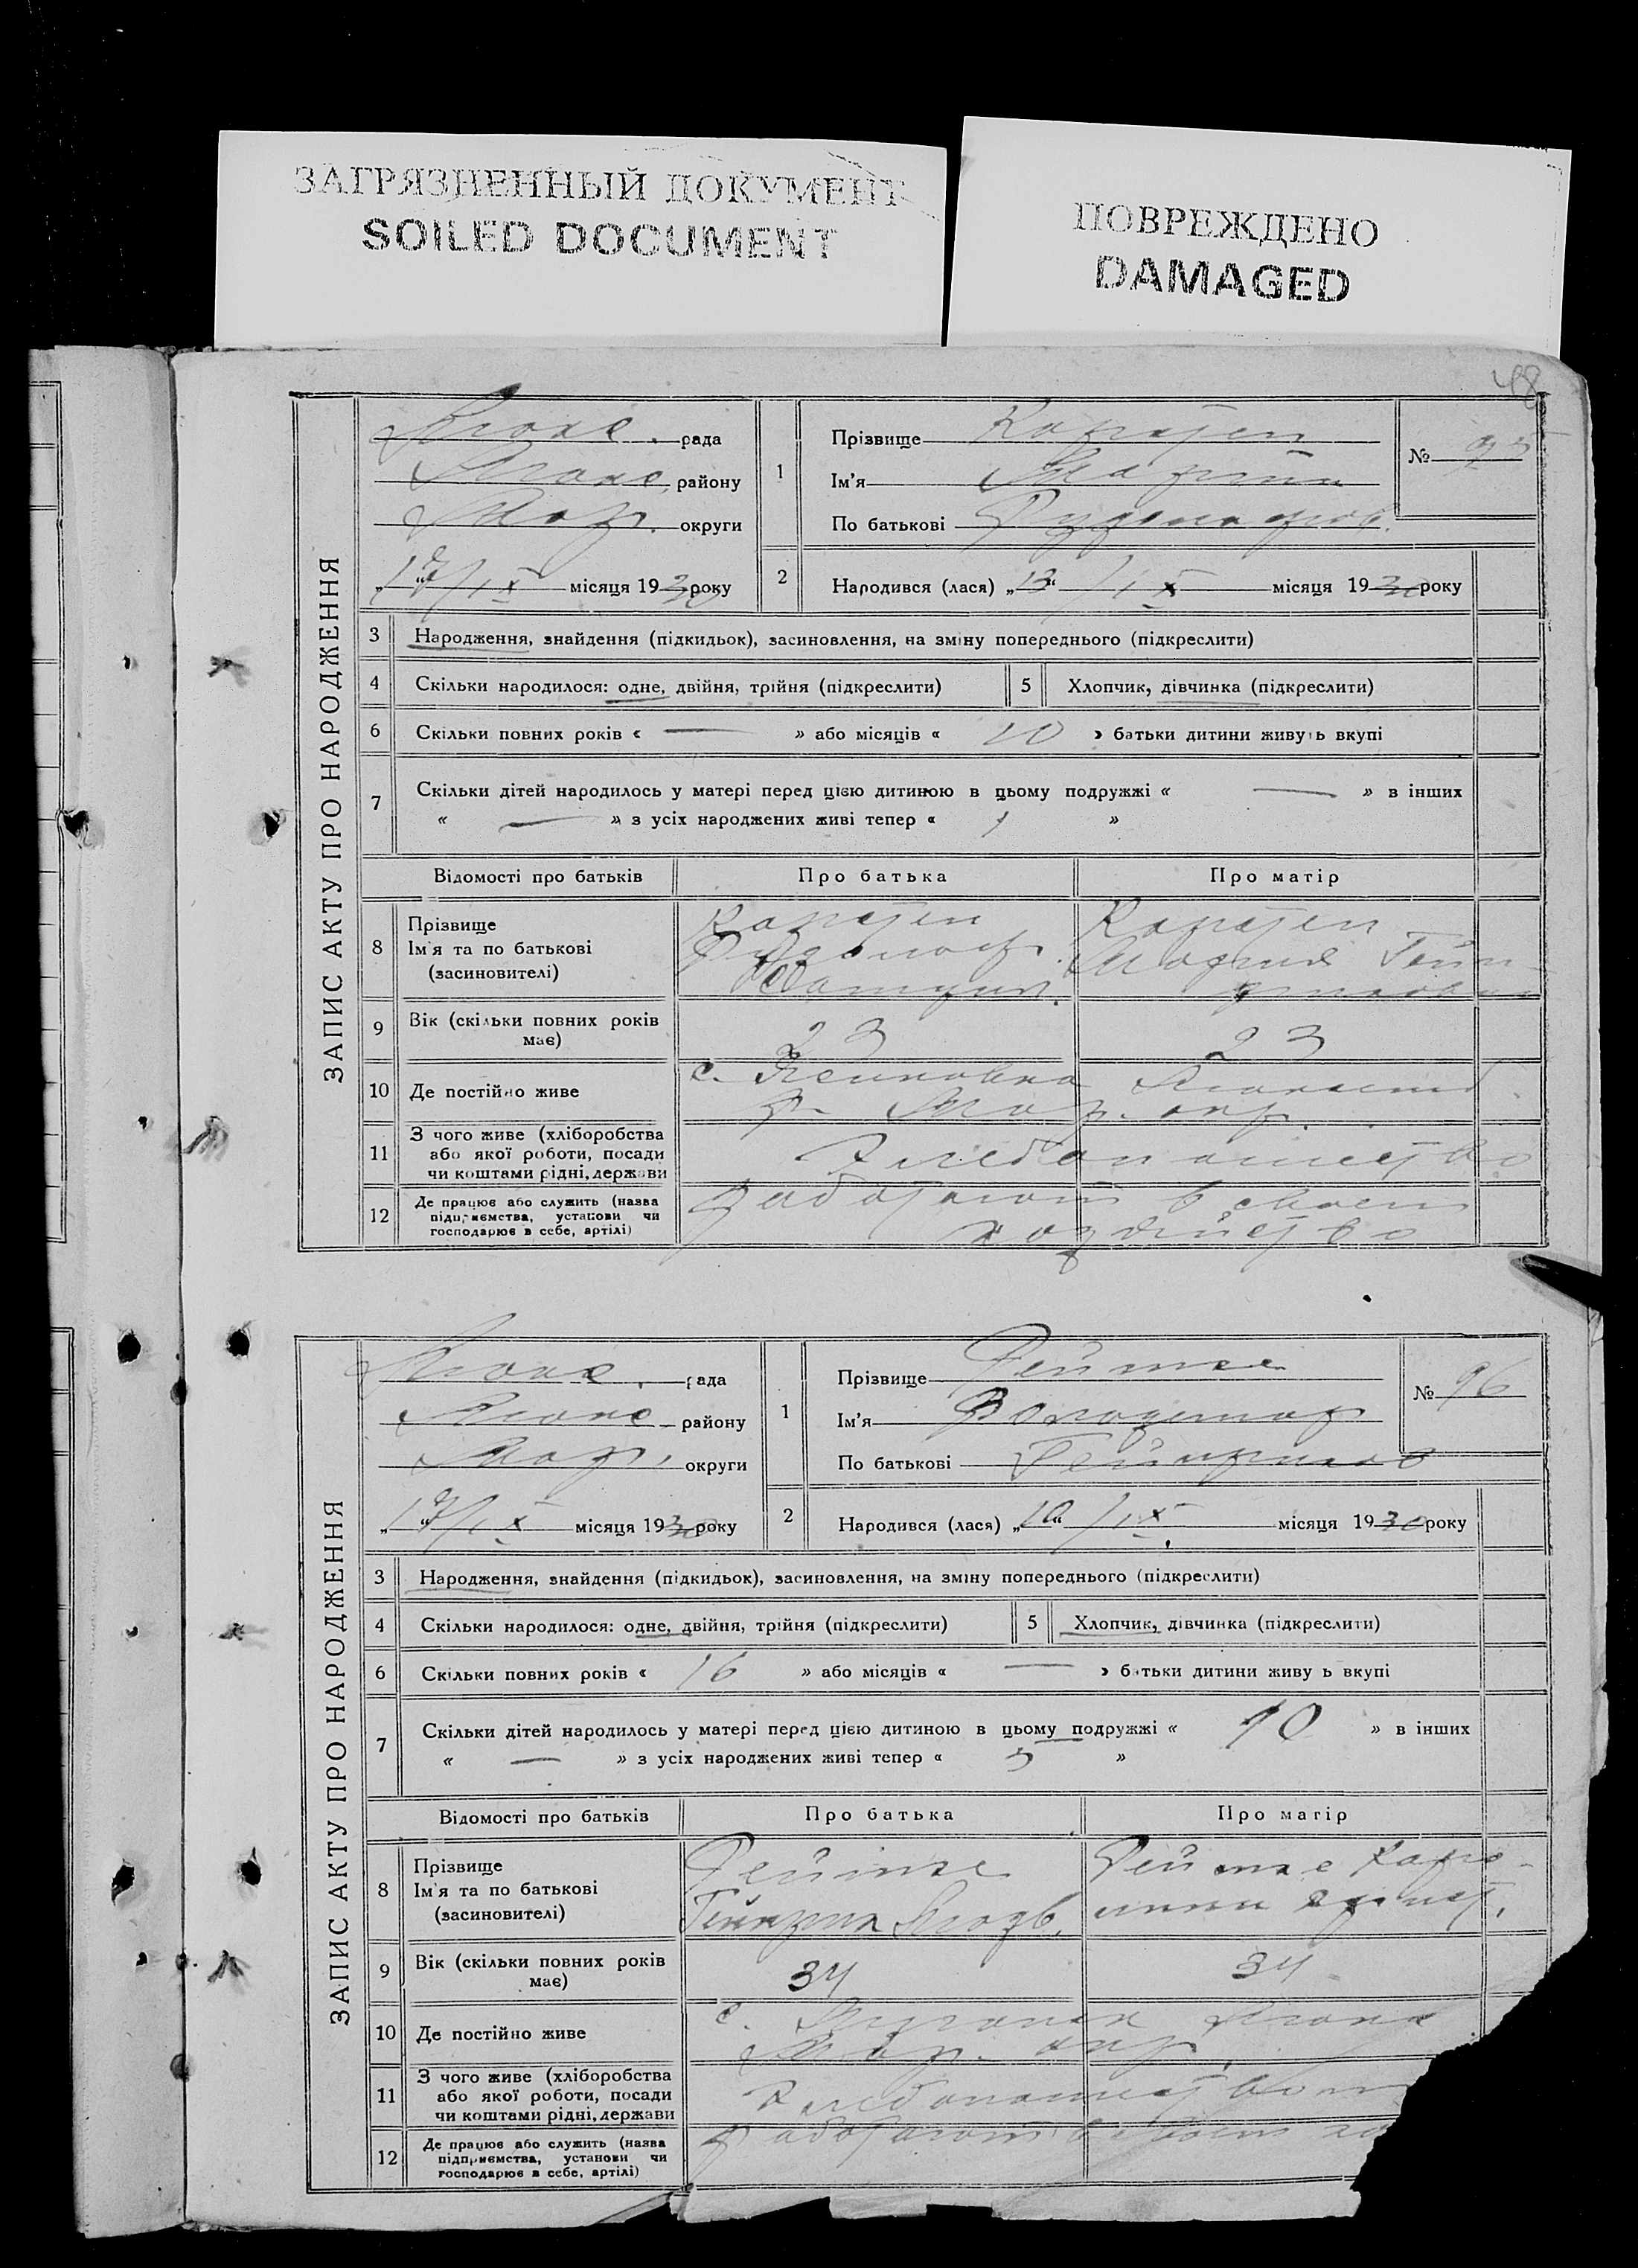 ЗАГРЯЗНЕННЫЙ ДОКУМЕНТ
SOILED DOCUMENT
ПОВРЕЖДЕНО
DAMAGED
48
ЗАПИС АКТУ ПРО НАРОДЖЕННЯ
рада
району
Мар. округи
„17/IX місяця 1930 року
1
Прізвище
Ім'я
По батькові
№ 95
2
Народився (лася) „13“ /IX місяця 1930 року
3 Народження, знайдення (підкидьок), засиновлення, на зміну попереднього (підкреслити)
4 Скільки народилося: одне, двійня, трійня (підкреслити)
5 Хлопчик, дівчинка (підкреслити)
6 Скільки повних років « — » або місяців « 10 » батьки дитини живуть вкупі
7 Скільки дітей народилось у матері перед цією дитиною в цьому подружжі « — » в інших
« — » з усіх народжених живі тепер « 1 »
Відомості про батьків
Про батька
Про матір
8 Прізвище
Ім'я та по батькові
(засиновителі)
Рудольф
Мария
9 Вік (скільки повних років
має)
23
23
10 Де постійно живе
с.
р. Мар. окр.
11 З чого живе (хліборобства
або якої роботи, посади
чи коштами рідні, держави
Хлебопашество
12 Де працює або служить (назва
підприємства, установи чи
господарює в себе, артілі)
работают в своем
хозяйство
ЗАПИС АКТУ ПРО НАРОДЖЕННЯ
рада
району
Мар. округи
„17/IX місяця 1930 року
1
Прізвище Реймке
Ім'я Володимир
По батькові Гейнрихов
№ 96
2
Народився (лася) „10“ /IX місяця 1930 року
3 Народження, знайдення (підкидьок), засиновлення, на зміну попереднього (підкреслити)
4 Скільки народилося: одне, двійня, трійня (підкреслити)
5 Хлопчик, дівчинка (підкреслити)
6 Скільки повних років « 16 » або місяців « — » батьки дитини живуть вкупі
7 Скільки дітей народилось у матері перед цією дитиною в цьому подружжі « 10 » в інших
« — » з усіх народжених живі тепер « 5 »
Відомості про батьків
Про батька
Про матір
8 Прізвище
Ім'я та по батькові
(засиновителі)
Реймке
Гейнрих
Реймке Каро-
лини
9 Вік (скільки повних років
має)
34
34
10 Де постійно живе
с.
Мар. окр.
11 З чого живе (хліборобства
або якої роботи, посади
чи коштами рідні, держави
Хлебопашеством
12 Де працює або служить (назва
підприємства, установи чи
господарює в себе, артілі)
работают в своем